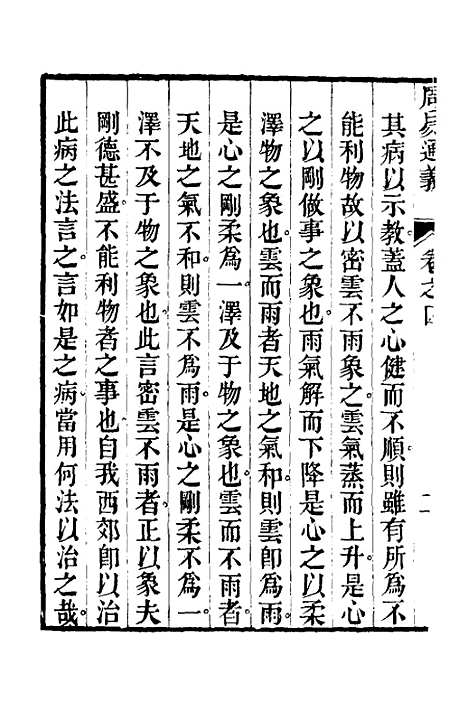 周易通義 卷之四 二
其病以示教。蓋人之心健而不順。則雖有所爲不
能利物。故以密雲不雨象之。雲氣蒸而上升。是心
之以剛做事之象也。雨氣解而下降。是心之以柔
澤物之象也。雲而雨者。天地之氣和。則雲卽爲雨。
是心之剛柔爲一。澤及于物之象也。雲而不雨者。
天地之氣不和。則雲不爲雨。是心之剛柔不爲一。
澤不及于物之象也。此言密雲不雨者。正以象夫
剛德甚盛。不能利物者之事也。自我西郊。卽以治
此病之法言之。言如是之病。當用何法以治之哉。